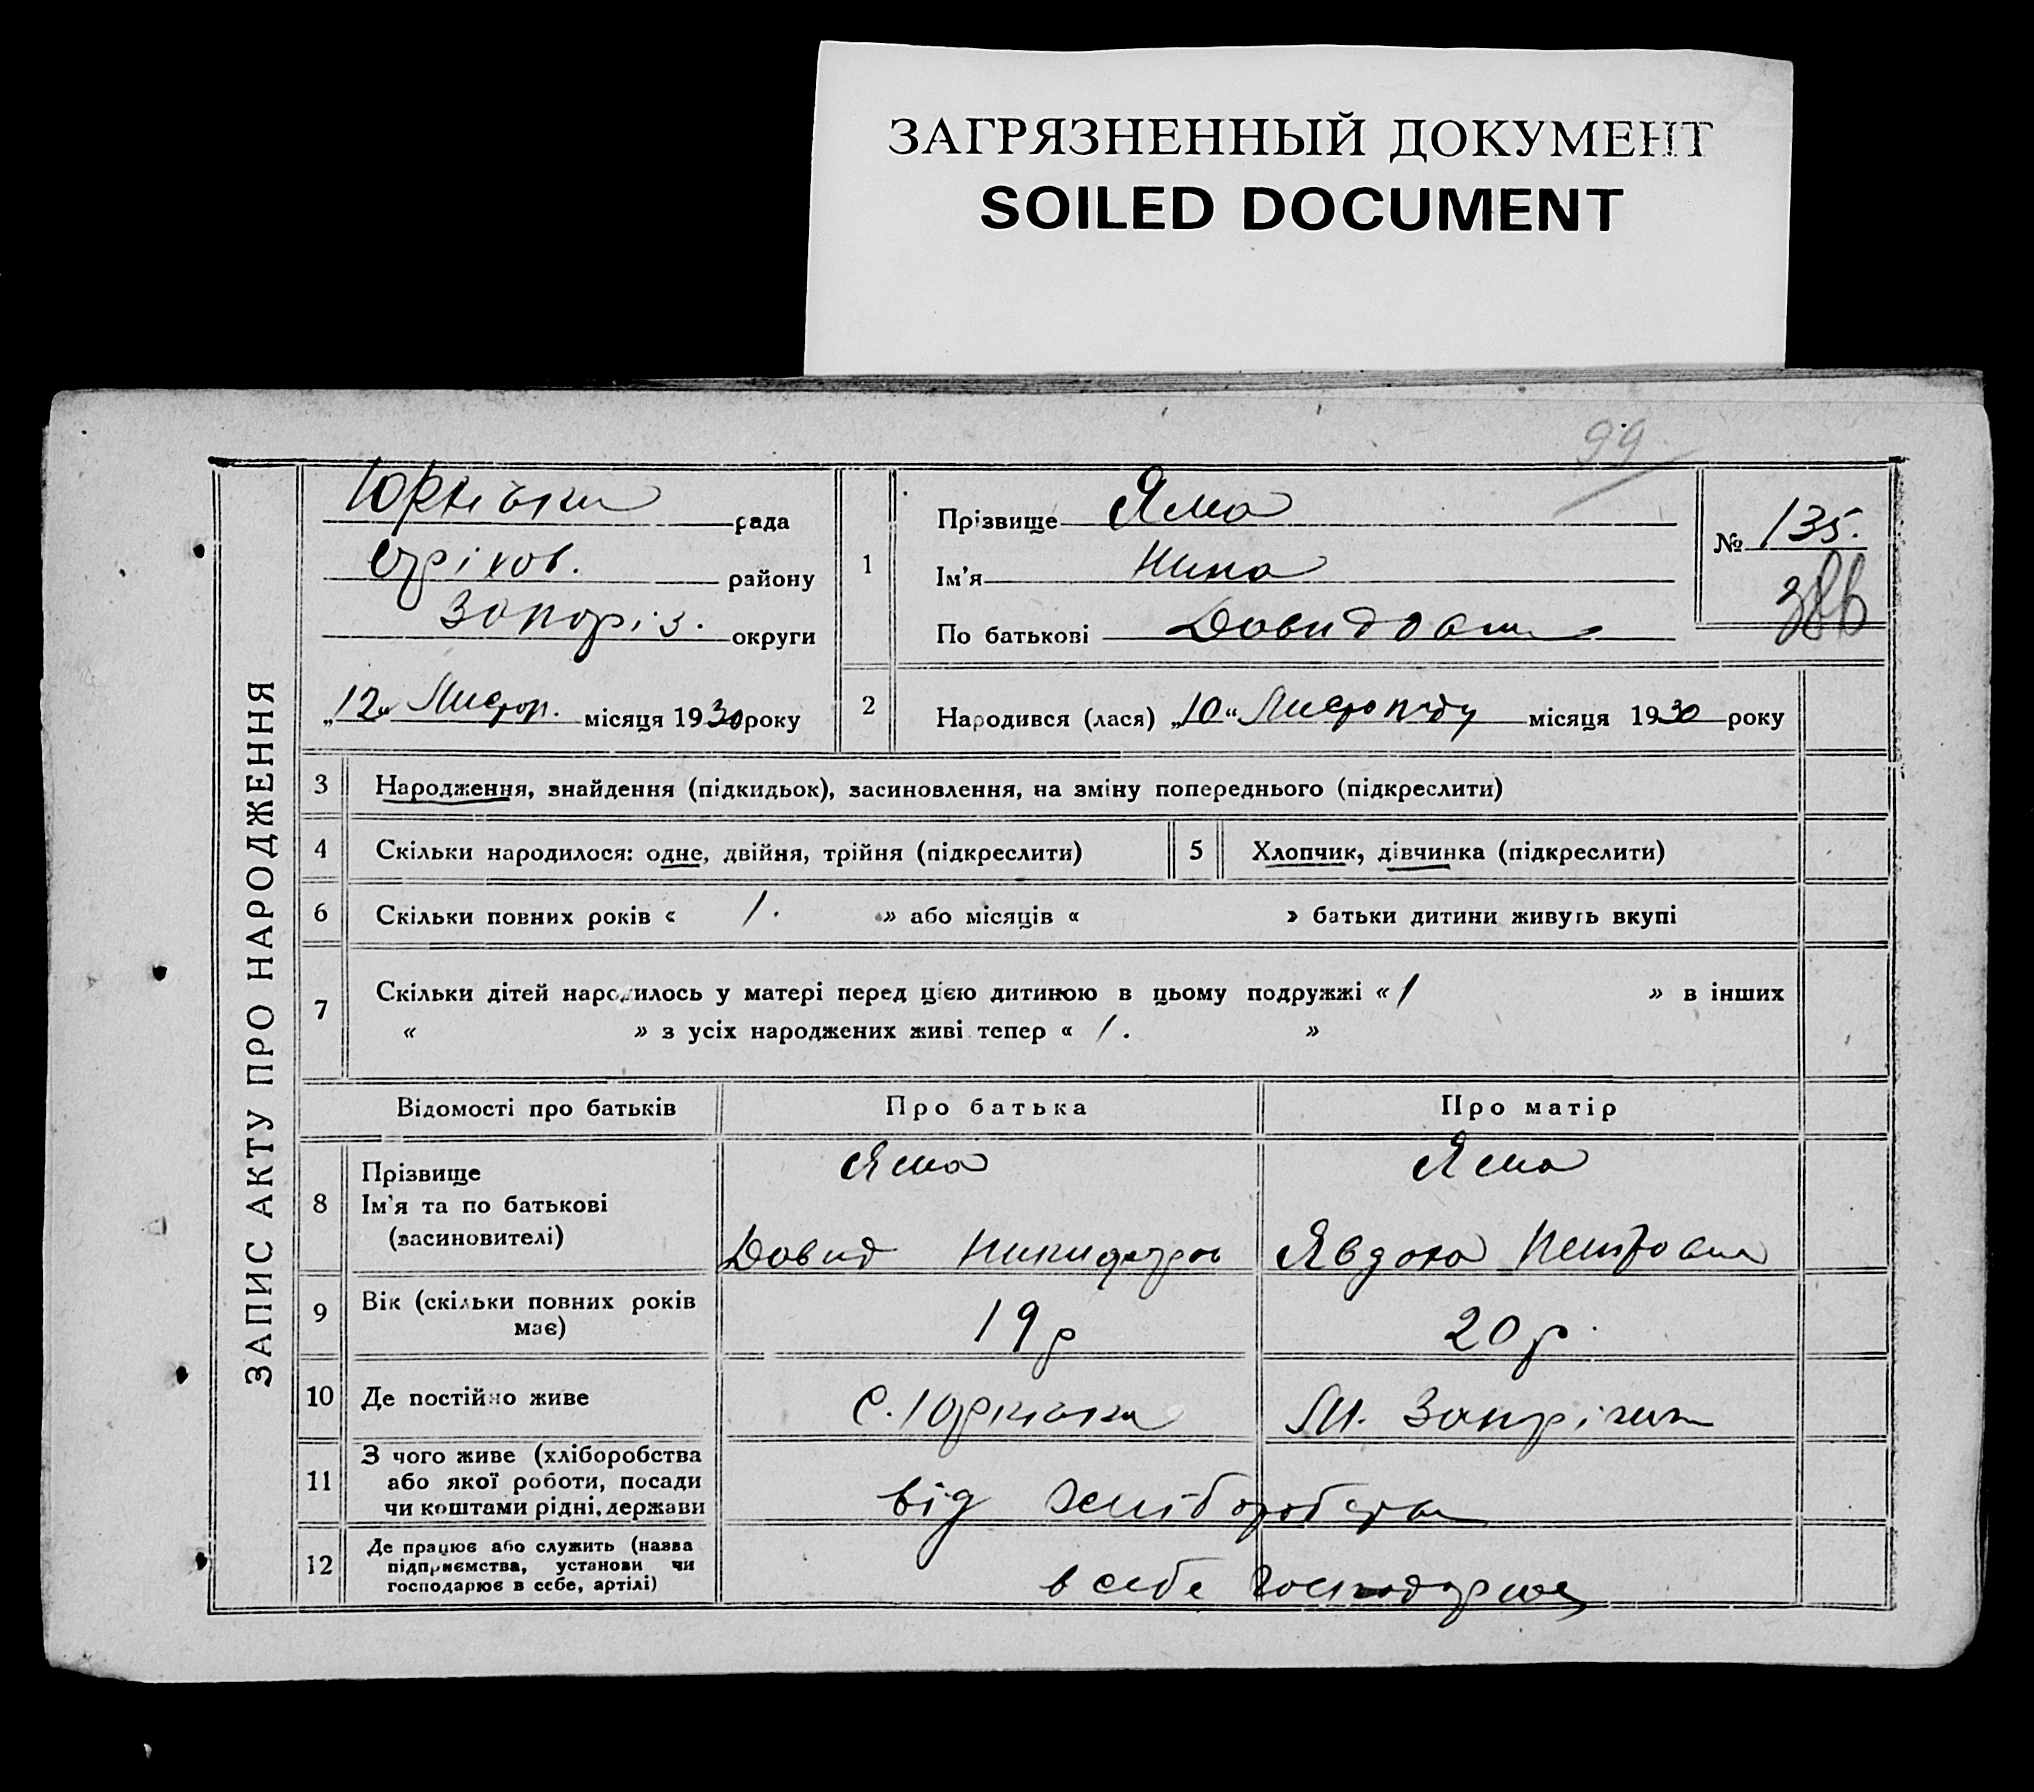 ЗАГРЯЗНЕННЫЙ ДОКУМЕНТ
SOILED DOCUMENT
99
ЗАПИС АКТУ ПРО НАРОДЖЕННЯ
Юрківка рада
Оріхов. району
Запоріз. округи
„12“ Листоп. місяця 1930 року
1
Прізвище Яма
Ім'я Нина
По батькові Довидовна
№ 135.
2 Народився (лася) „10“ Листопаду місяця 1930 року
3 Народження, знайдення (підкидьок), засиновлення, на зміну попереднього (підкреслити)
4 Скільки народилося: одне, двійня, трійня (підкреслити) 5 Хлопчик, дівчинка (підкреслити)
6 Скільки повних років « 1. » або місяців « » батьки дитини живуть вкупі
7 Скільки дітей народилось у матері перед цією дитиною в цьому подружжі « 1 » в інших
« » з усіх народжених живі тепер « 1. »
Відомості про батьків Про батька Про матір
8 Прізвище Яма Яма
Ім'я та по батькові
(засиновителі) Довид Никифоров Явдоха Петровна
9 Вік (скільки повних років
має) 19 р 20 р.
10 Де постійно живе С. Юрківка
11 З чого живе (хліборобства
або якої роботи, посади
чи коштами рідні, держави від хліборобства
12 Де працює або служить (назва
підприємства, установи чи
господарює в себе, артілі) в себе господарює